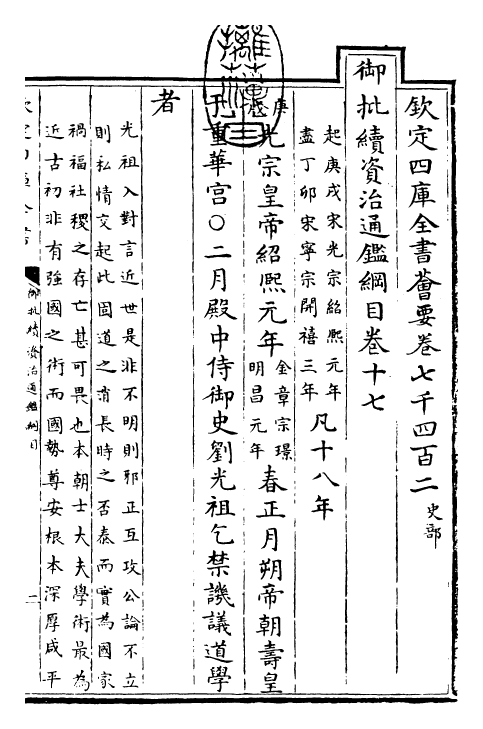 欽定四庫全書薈要卷七千四百二 史部
御批續資治通鑑綱目卷十七
起庚戌宋光宗紹熙元年
盡丁卯宋寧宗開禧三年
凡十八年
庚 光宗皇帝紹熙元年 金章宗璟 明昌元年 春正月朔帝朝壽皇
重華宮○二月殿中侍御史劉光祖乞禁譏議道學
者
光祖入對言近世是非不明則邪正互攻公論不立
則私情交起此固道之消長時之否泰而實為國家
禍福社稷之存亡甚可畏也本朝士大夫學術最為
近古初非有強國之術而國勢尊安根本深厚咸平
御批續資治通鑑綱目